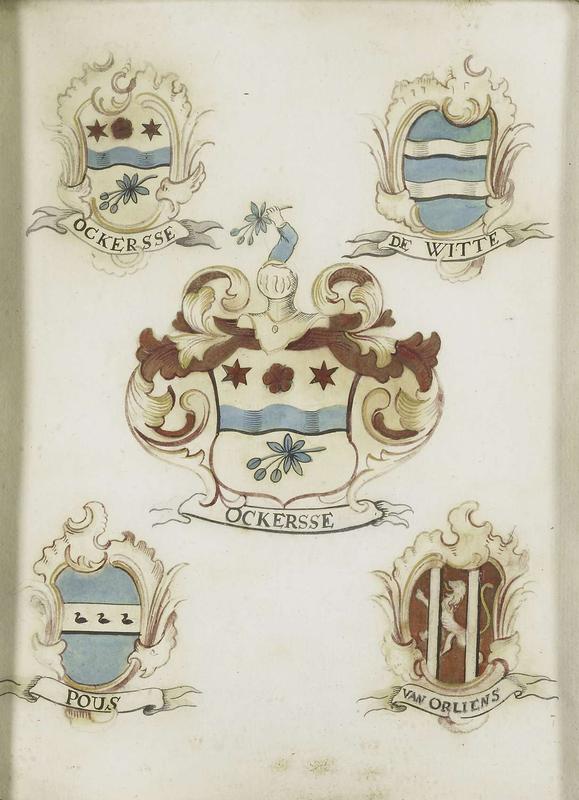 OCKERSSE
DE WITTE
OCKERSSE
POUS
VAN ORLIENS